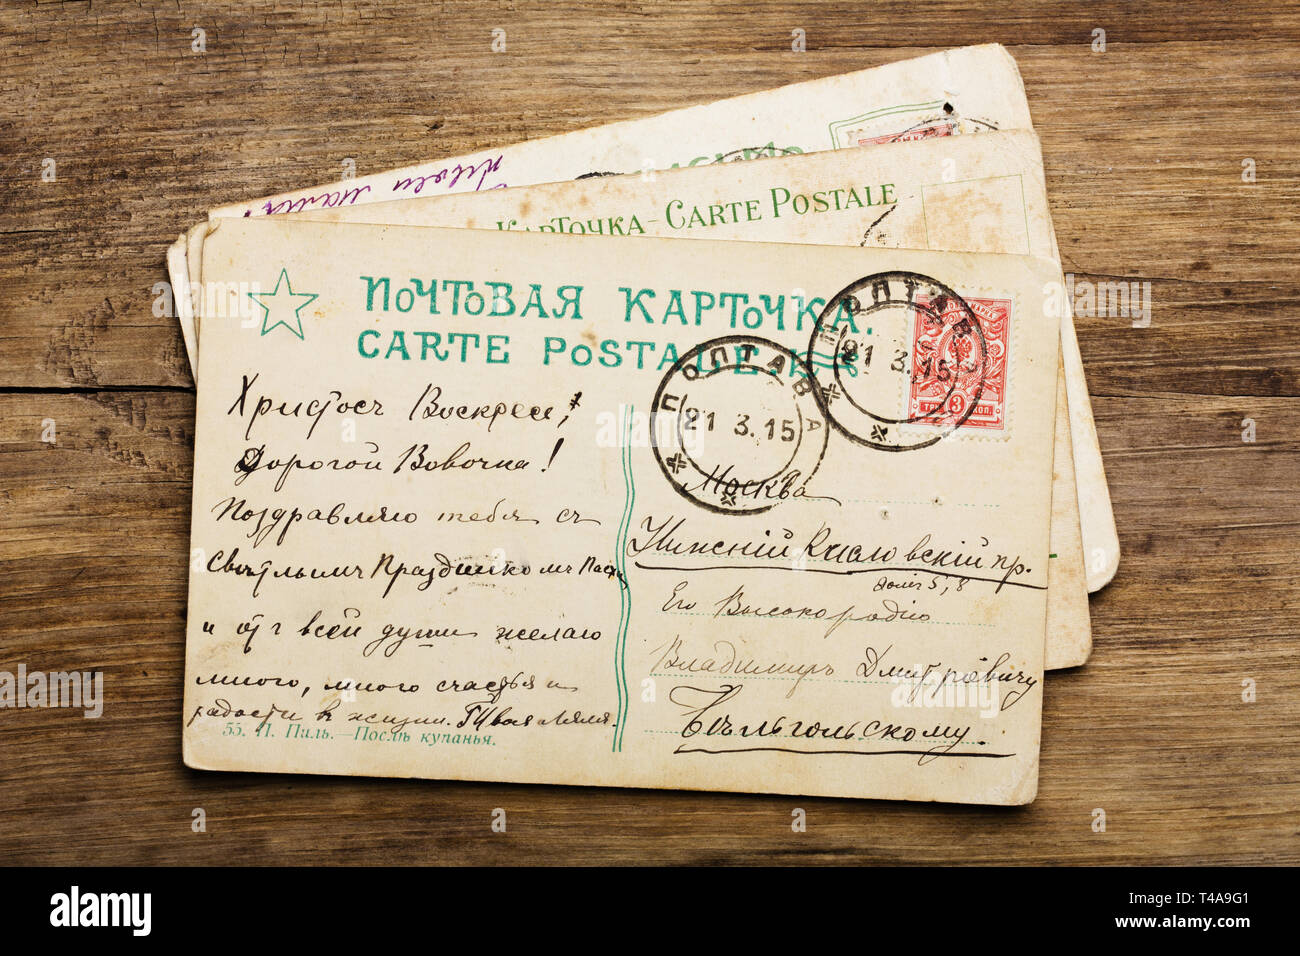 КАРТОЧКА - CARTE POSTALE
ПОЧТОВАЯ КАРТОЧКА.
CARTE POSTALE
ПОЛТАВА
21 3.15
ПОЛТАВА
21 3.15
ТРИ 3 КОП.
Христосъ Воскресе,
Дорогой Вовочка!
Поздравляю тебя съ
Свѣтлымъ Праздникомъ
и отъ всей души желаю
много, много счастья и
радости въ жизни. Твоя Ляля.
55. П. Пиль.—Послѣ купанья.
Москва
Нижній Кисловскій пр.
домъ 5, 8
Его Высокородію
Владимиръ Дмитріевичу
Бѣльгольскому.
alamy
Image ID: T4A9G1
www.alamy.com